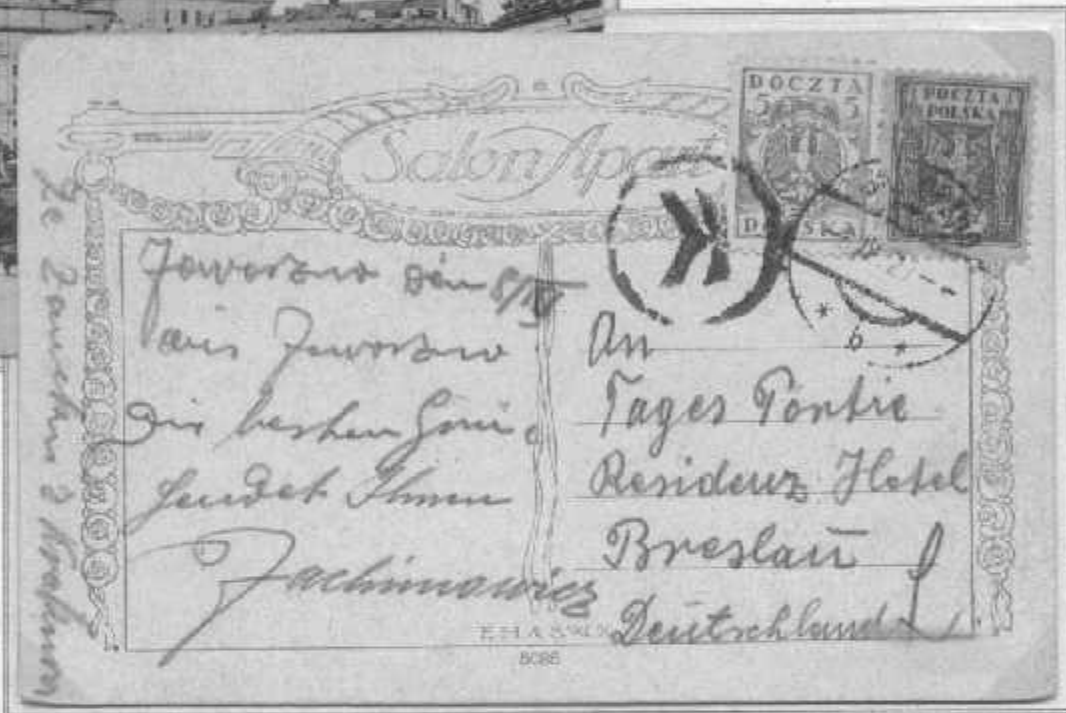 Salon Apart
POCZTA
5 5
POLSKA
POCZTA
POLSKA
K
6
Jaworzno den 8/IV
aus Jaworzno
Die besten
sendet Ihnen
Jachimowicz
An
Tages Portie
Residenz Hotel
Breslau
Deutschland
5035